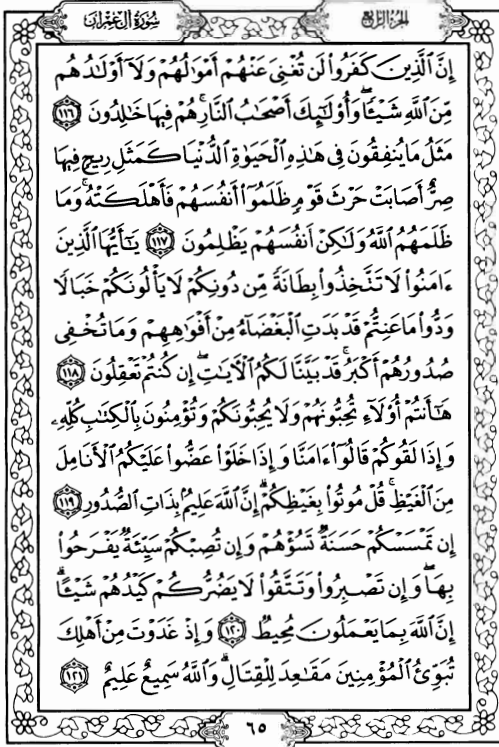 سُورَةُ آلِ عِمْرَانَ
الجُزءُ الرَّابِعُ
إِنَّ ٱلَّذِينَ كَفَرُواْ لَن تُغْنِىَ عَنْهُمْ أَمْوَٰلُهُمْ وَلَآ أَوْلَٰدُهُم
مِّنَ ٱللَّهِ شَيْـًٔا ۖ وَأُوْلَٰٓئِكَ أَصْحَٰبُ ٱلنَّارِ ۚ هُمْ فِيهَا خَٰلِدُونَ ١١٦
مَثَلُ مَا يُنفِقُونَ فِى هَٰذِهِ ٱلْحَيَوٰةِ ٱلدُّنْيَا كَمَثَلِ رِيحٍ فِيهَا
صِرٌّ أَصَابَتْ حَرْثَ قَوْمٍ ظَلَمُوٓاْ أَنفُسَهُمْ فَأَهْلَكَتْهُ ۚ وَمَا
ظَلَمَهُمُ ٱللَّهُ وَلَٰكِنْ أَنفُسَهُمْ يَظْلِمُونَ ١١٧ يَٰٓأَيُّهَا ٱلَّذِينَ
ءَامَنُواْ لَا تَتَّخِذُواْ بِطَانَةً مِّن دُونِكُمْ لَا يَأْلُونَكُمْ خَبَالًا
وَدُّواْ مَا عَنِتُّمْ قَدْ بَدَتِ ٱلْبَغْضَآءُ مِنْ أَفْوَٰهِهِمْ وَمَا تُخْفِى
صُدُورُهُمْ أَكْبَرُ ۚ قَدْ بَيَّنَّا لَكُمُ ٱلْـَٔايَٰتِ ۖ إِن كُنتُمْ تَعْقِلُونَ ١١٨
هَٰٓأَنتُمْ أُوْلَآءِ تُحِبُّونَهُمْ وَلَا يُحِبُّونَكُمْ وَتُؤْمِنُونَ بِٱلْكِتَٰبِ كُلِّهِۦ
وَإِذَا لَقُوكُمْ قَالُوٓاْ ءَامَنَّا وَإِذَا خَلَوْاْ عَضُّواْ عَلَيْكُمُ ٱلْأَنَامِلَ
مِنَ ٱلْغَيْظِ ۚ قُلْ مُوتُواْ بِغَيْظِكُمْ ۗ إِنَّ ٱللَّهَ عَلِيمٌۢ بِذَاتِ ٱلصُّدُورِ ١١٩
إِن تَمْسَسْكُمْ حَسَنَةٌ تَسُؤْهُمْ وَإِن تُصِبْكُمْ سَيِّئَةٌ يَفْرَحُواْ
بِهَا ۖ وَإِن تَصْبِرُواْ وَتَتَّقُواْ لَا يَضُرُّكُمْ كَيْدُهُمْ شَيْـًٔا ۗ
إِنَّ ٱللَّهَ بِمَا يَعْمَلُونَ مُحِيطٌ ١٢٠ وَإِذْ غَدَوْتَ مِنْ أَهْلِكَ
تُبَوِّئُ ٱلْمُؤْمِنِينَ مَقَٰعِدَ لِلْقِتَالِ ۗ وَٱللَّهُ سَمِيعٌ عَلِيمٌ ١٢١
٦٥